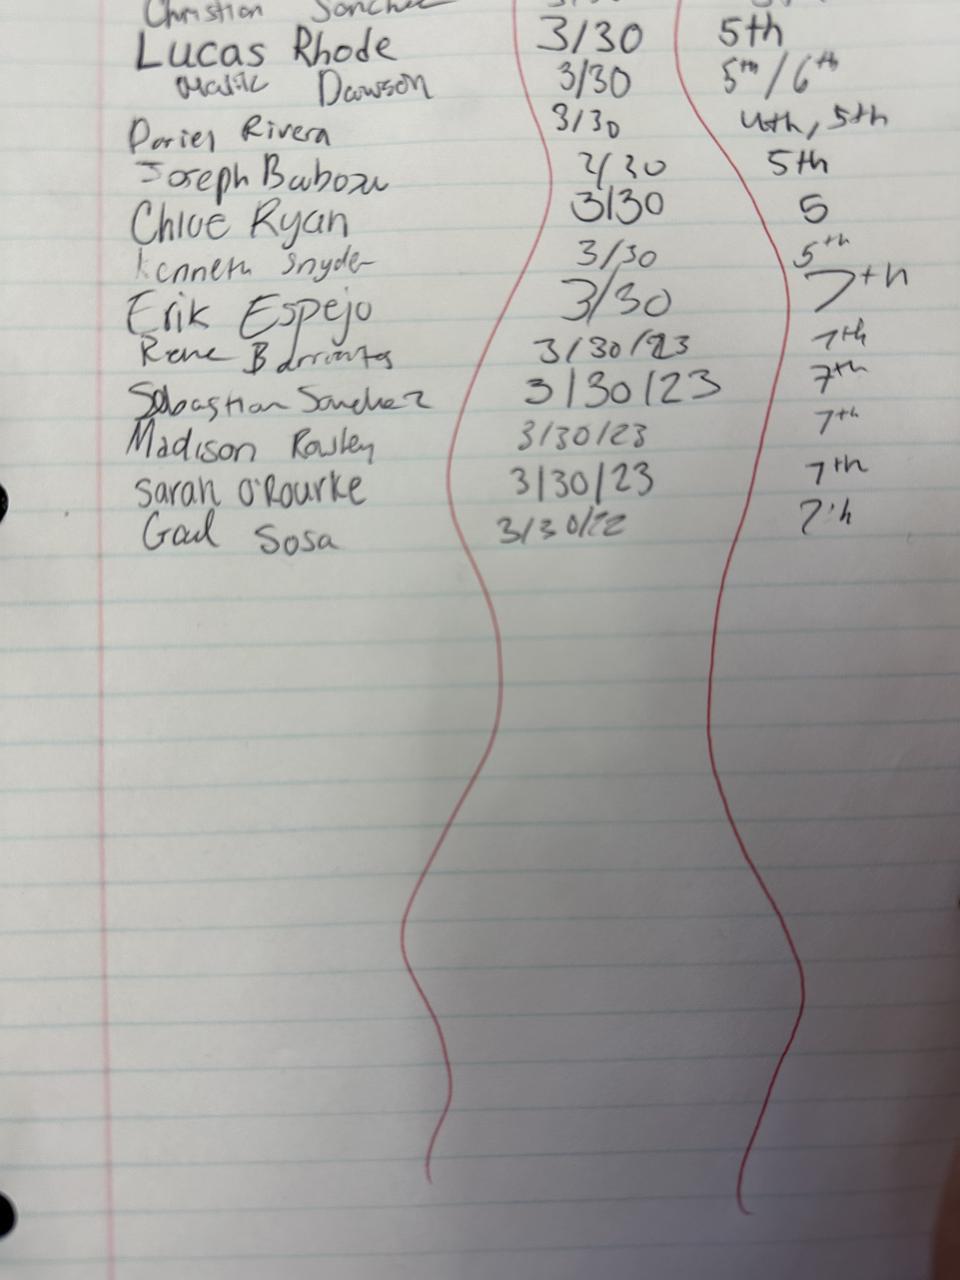 Christian Sanchez
Lucas Rhode 3/30 5th
Dawson 3/30 5th/6th
Dariel Rivera 3/30 4th, 5th
Joseph 3/30 5th
Chloe Ryan 3/30 5
Kenneth Snyder 3/30 5th
Erik Espejo 3/30 7th
Rene Barrientos 3/30/23 7th
Sebastian Sanchez 3/30/23 7th
Madison Rowley 3/30/23 7th
Sarah O'Rourke 3/30/23 7th
Gael Sosa 3/30/22 7th